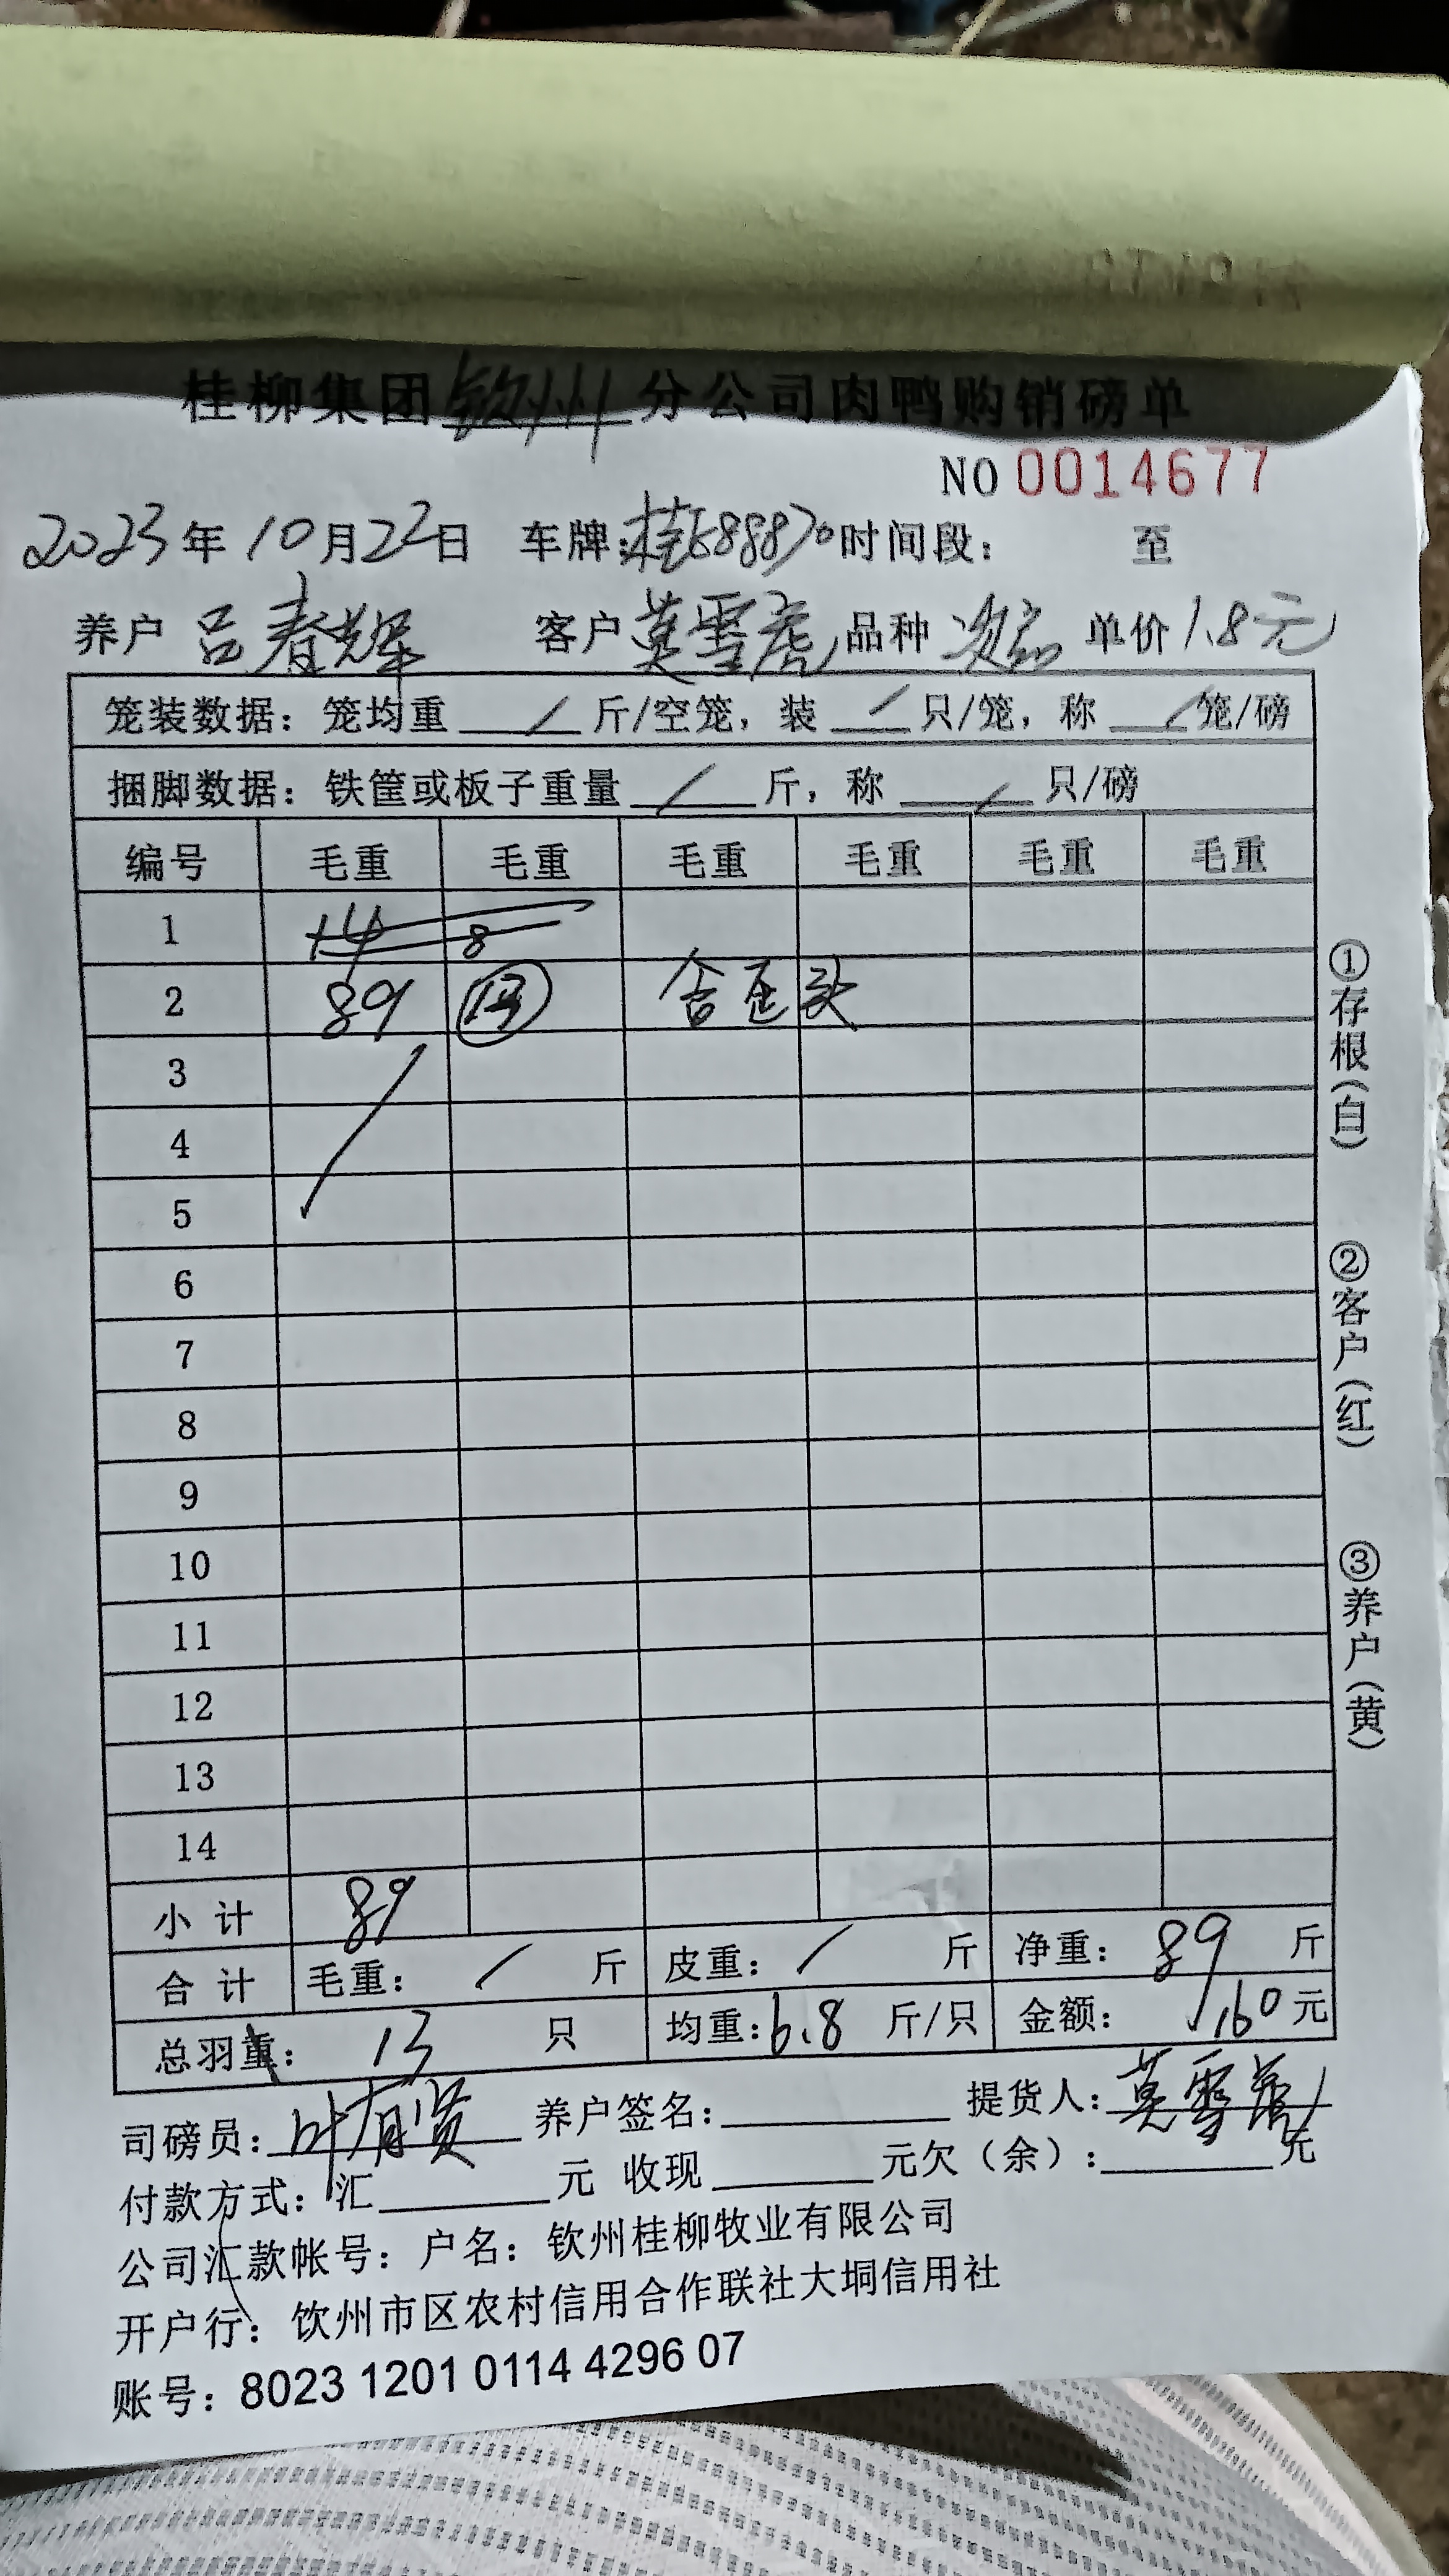 桂柳集团钦州分公司肉鸭购销磅单
NO 0014677
2023年10月22日 车牌:桂E88870时间段: 至
养户 吕春辉 客户 莫雪虎 品种 次品 单价1.8元
笼装数据: 笼均重 / 斤/空笼, 装 / 只/笼, 称 / 笼/磅
捆脚数据: 铁筐或板子重量 / 斤, 称 / 只/磅
编号 毛重 毛重 毛重 毛重 毛重 毛重
1 14 8
2 89 13 含歪头
3
4
5
6
7
8
9
10
11
12
13
14
小 计 89
合 计 毛重: / 斤 皮重: / 斤 净重: 89 斤
总羽重: 13 只 均重:6.8 斤/只 金额: 160元
司磅员: 叶有贤 养户签名: 提货人: 莫雪虎
付款方式: 汇 元 收现 元欠(余): 元
公司汇款帐号: 户名: 钦州桂柳牧业有限公司
开户行: 钦州市区农村信用合作联社大垌信用社
账号: 8023 1201 0114 4296 07
①存根(白)
②客户(红)
③养户(黄)